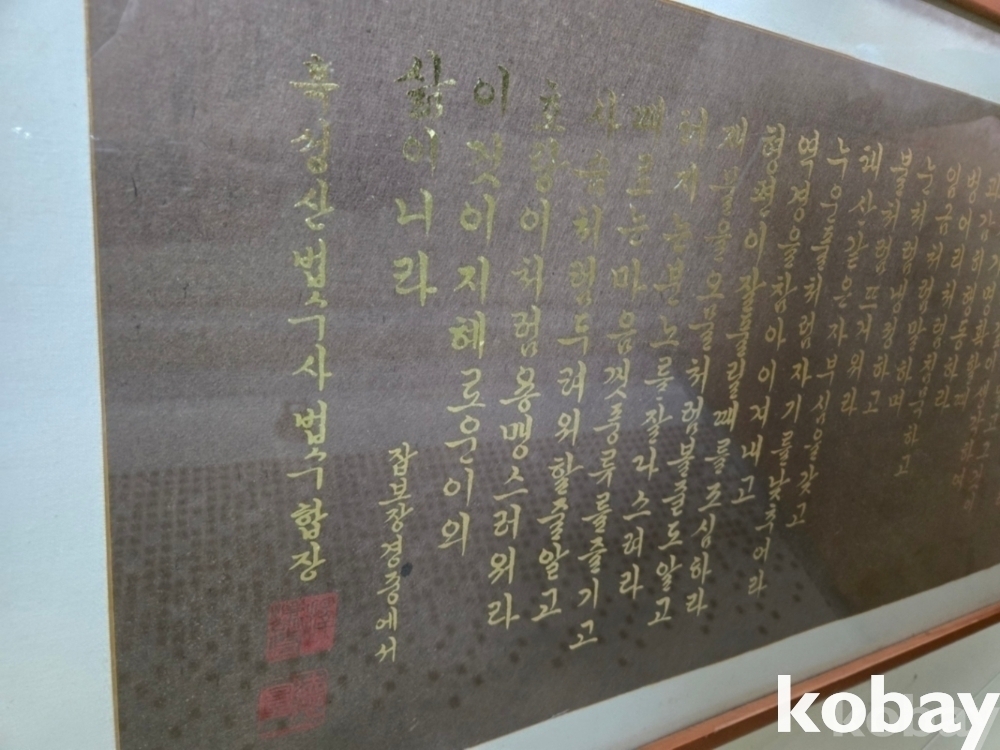 벙어리처럼 침묵하고
임금처럼 말하며
눈처럼 냉정하고
불처럼 뜨거워라
태산같은 자부심을 갖고
누운풀처럼 자기를 낮추어라
역경을 참아 이겨내고
형편이 잘풀릴때를 조심하라
재물을 오물처럼 볼줄도 알고
터지는 분노를 잘 다스려라
때로는 마음껏 풍류를 즐기고
사슴처럼 두려워할줄 알고
호랑이처럼 용맹스러워라
이것이 지혜로운이의
삶이니라
잡보장경중에서
흑성산 법수사 법수합장
kobay